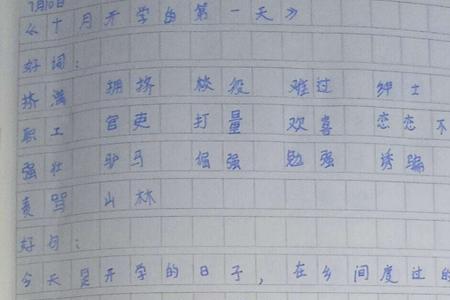 7月10日
《十月开学的第一天》
好词:
挤满 拥挤 棪役 难过 绅士
职工 官吏 打量 欢喜 恋恋不
强壮 驴马 倔强 勉强 诱骗
责骂 山林
好句:
今天是开学的日子,在乡间度过的